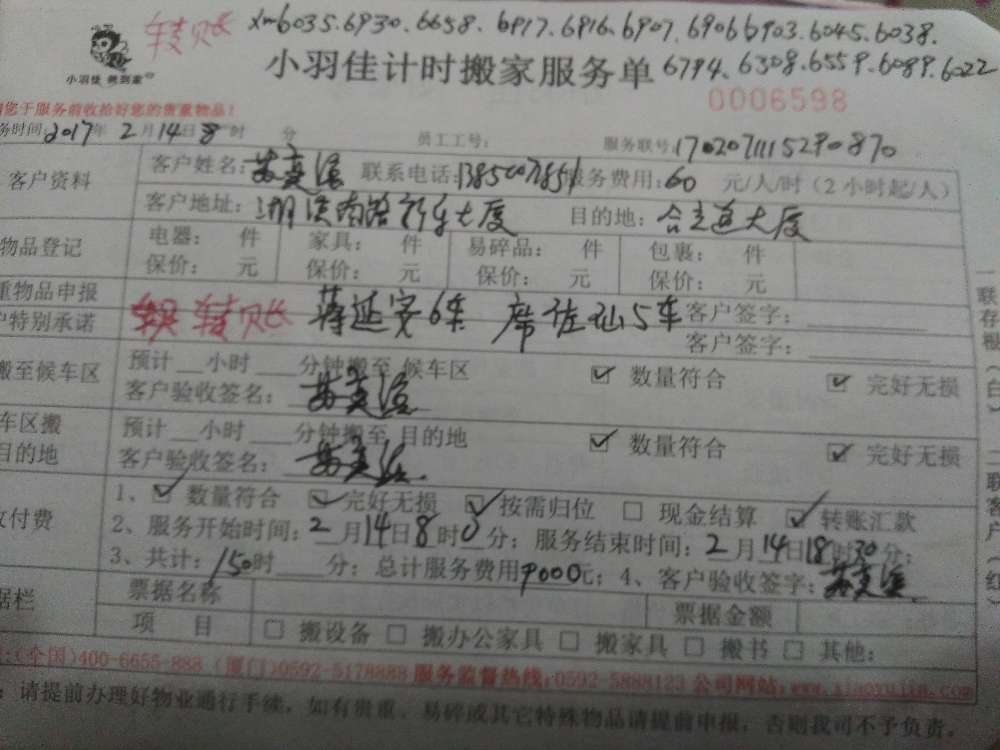 转账 xm6035.6930.6658.6917.6916.6907.6906 6903.6045.6038.
小羽佳 帮到家
小羽佳计时搬家服务单 6794、6308.6559.6089.6022
您于服务前收拾好您的贵重物品！ 0006598
务时间：2017年 2月14日8时 分 员工工号： 服务联号：170207111529 0870
客户资料 客户姓名： 联系电话： 服务费用：60 元/人/时（2小时起/人）
客户地址： 大厦 目的地： 大厦
物品登记 电器： 件 家具： 件 易碎品： 件 包裹： 件
保价： 元 保价： 元 保价： 元 保价： 元
重物品申报 客户签字：
户特别承诺 转账 6车 5车 客户签字：
搬至候车区 预计 小时 分钟搬至 候车区 ☑ 数量符合 ☑ 完好无损
客户验收签名：
车区搬 预计 小时 分钟搬至 目的地 ☑ 数量符合 ☑ 完好无损
目的地 客户验收签名：
付费 1、☑ 数量符合 ☑ 完好无损 ☑ 按需归位 □ 现金结算 ☑ 转账汇款
2、服务开始时间：2月14日8时0分；服务结束时间：2月14日18时30分；
3、共计：150时 分；总计服务费用9000元；4、客户验收签字：
据栏 票据名称 票据金额
项 目 □ 搬设备 □ 搬办公家具 □ 搬家具 □ 搬书 □ 其他：
(全国)400-6655-888 (厦门)0592-5178888 服务监督热线：0592-5888123 公司网站：www.xiaoyujia.com
：请提前办理好物业通行手续，如有贵重、易碎或其它特殊物品请提前申报，否则我司不予负责。
一联存根（白） 二联客户（红）